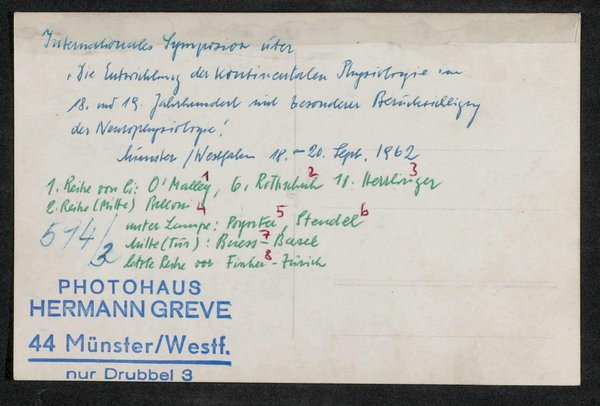 Internationales Symposion über
"Die Entwicklung der kontinentalen Physiologie im
18. und 19. Jahrhundert mit besonderer Berücksichtigung
der Neurophysiologie".
Münster/Westfalen 18.–20. Sept. 1962
1. Reihe von li: O'Malley, 6. Rothschuh 11. Herrlinger
1 2 3
2. Reihe (Mitte) Belloni 4
unter Lampe: Poynter 5, Stendel 6
Mitte (Tür): Buess - Basel
7
letzte Reihe vor Fischer - Zürich
8
514/2
PHOTOHAUS
HERMANN GREVE
44 Münster/Westf.
nur Drubbel 3